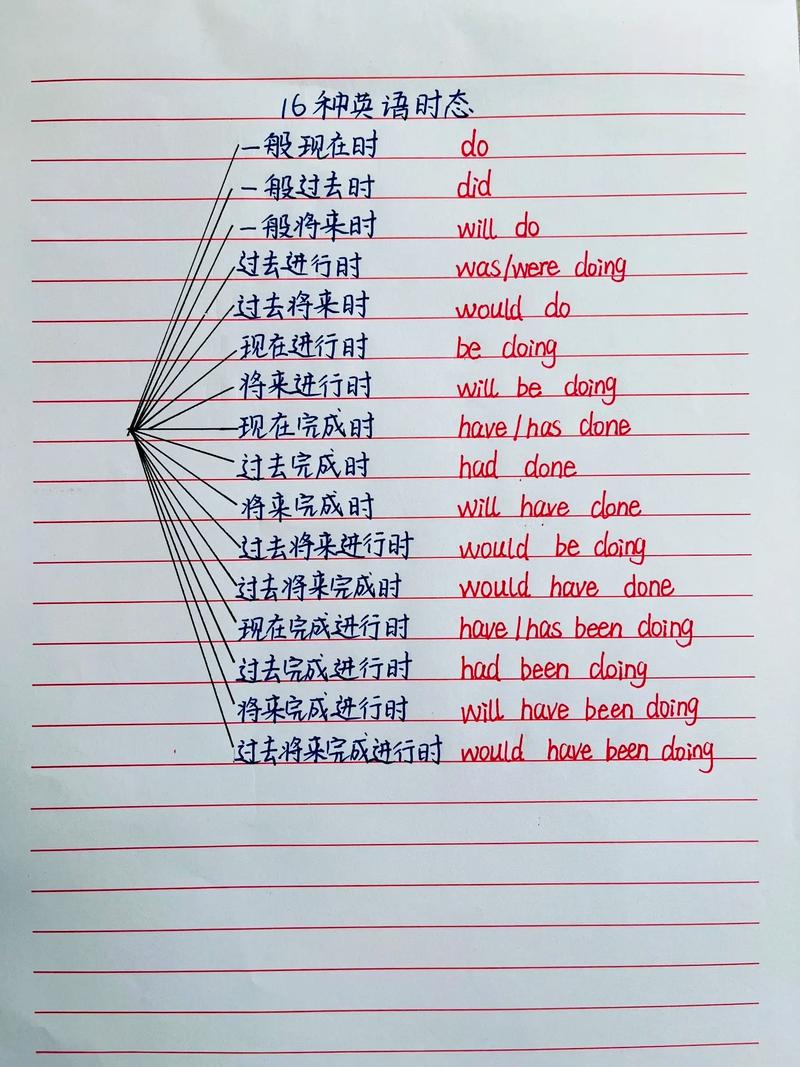 16种英语时态
一般现在时 do
一般过去时 did
一般将来时 will do
过去进行时 was/were doing
过去将来时 would do
现在进行时 be doing
将来进行时 will be doing
现在完成时 have/has done
过去完成时 had done
将来完成时 will have done
过去将来进行时 would be doing
过去将来完成时 would have done
现在完成进行时 have/has been doing
过去完成进行时 had been doing
将来完成进行时 will have been doing
过去将来完成进行时 would have been doing